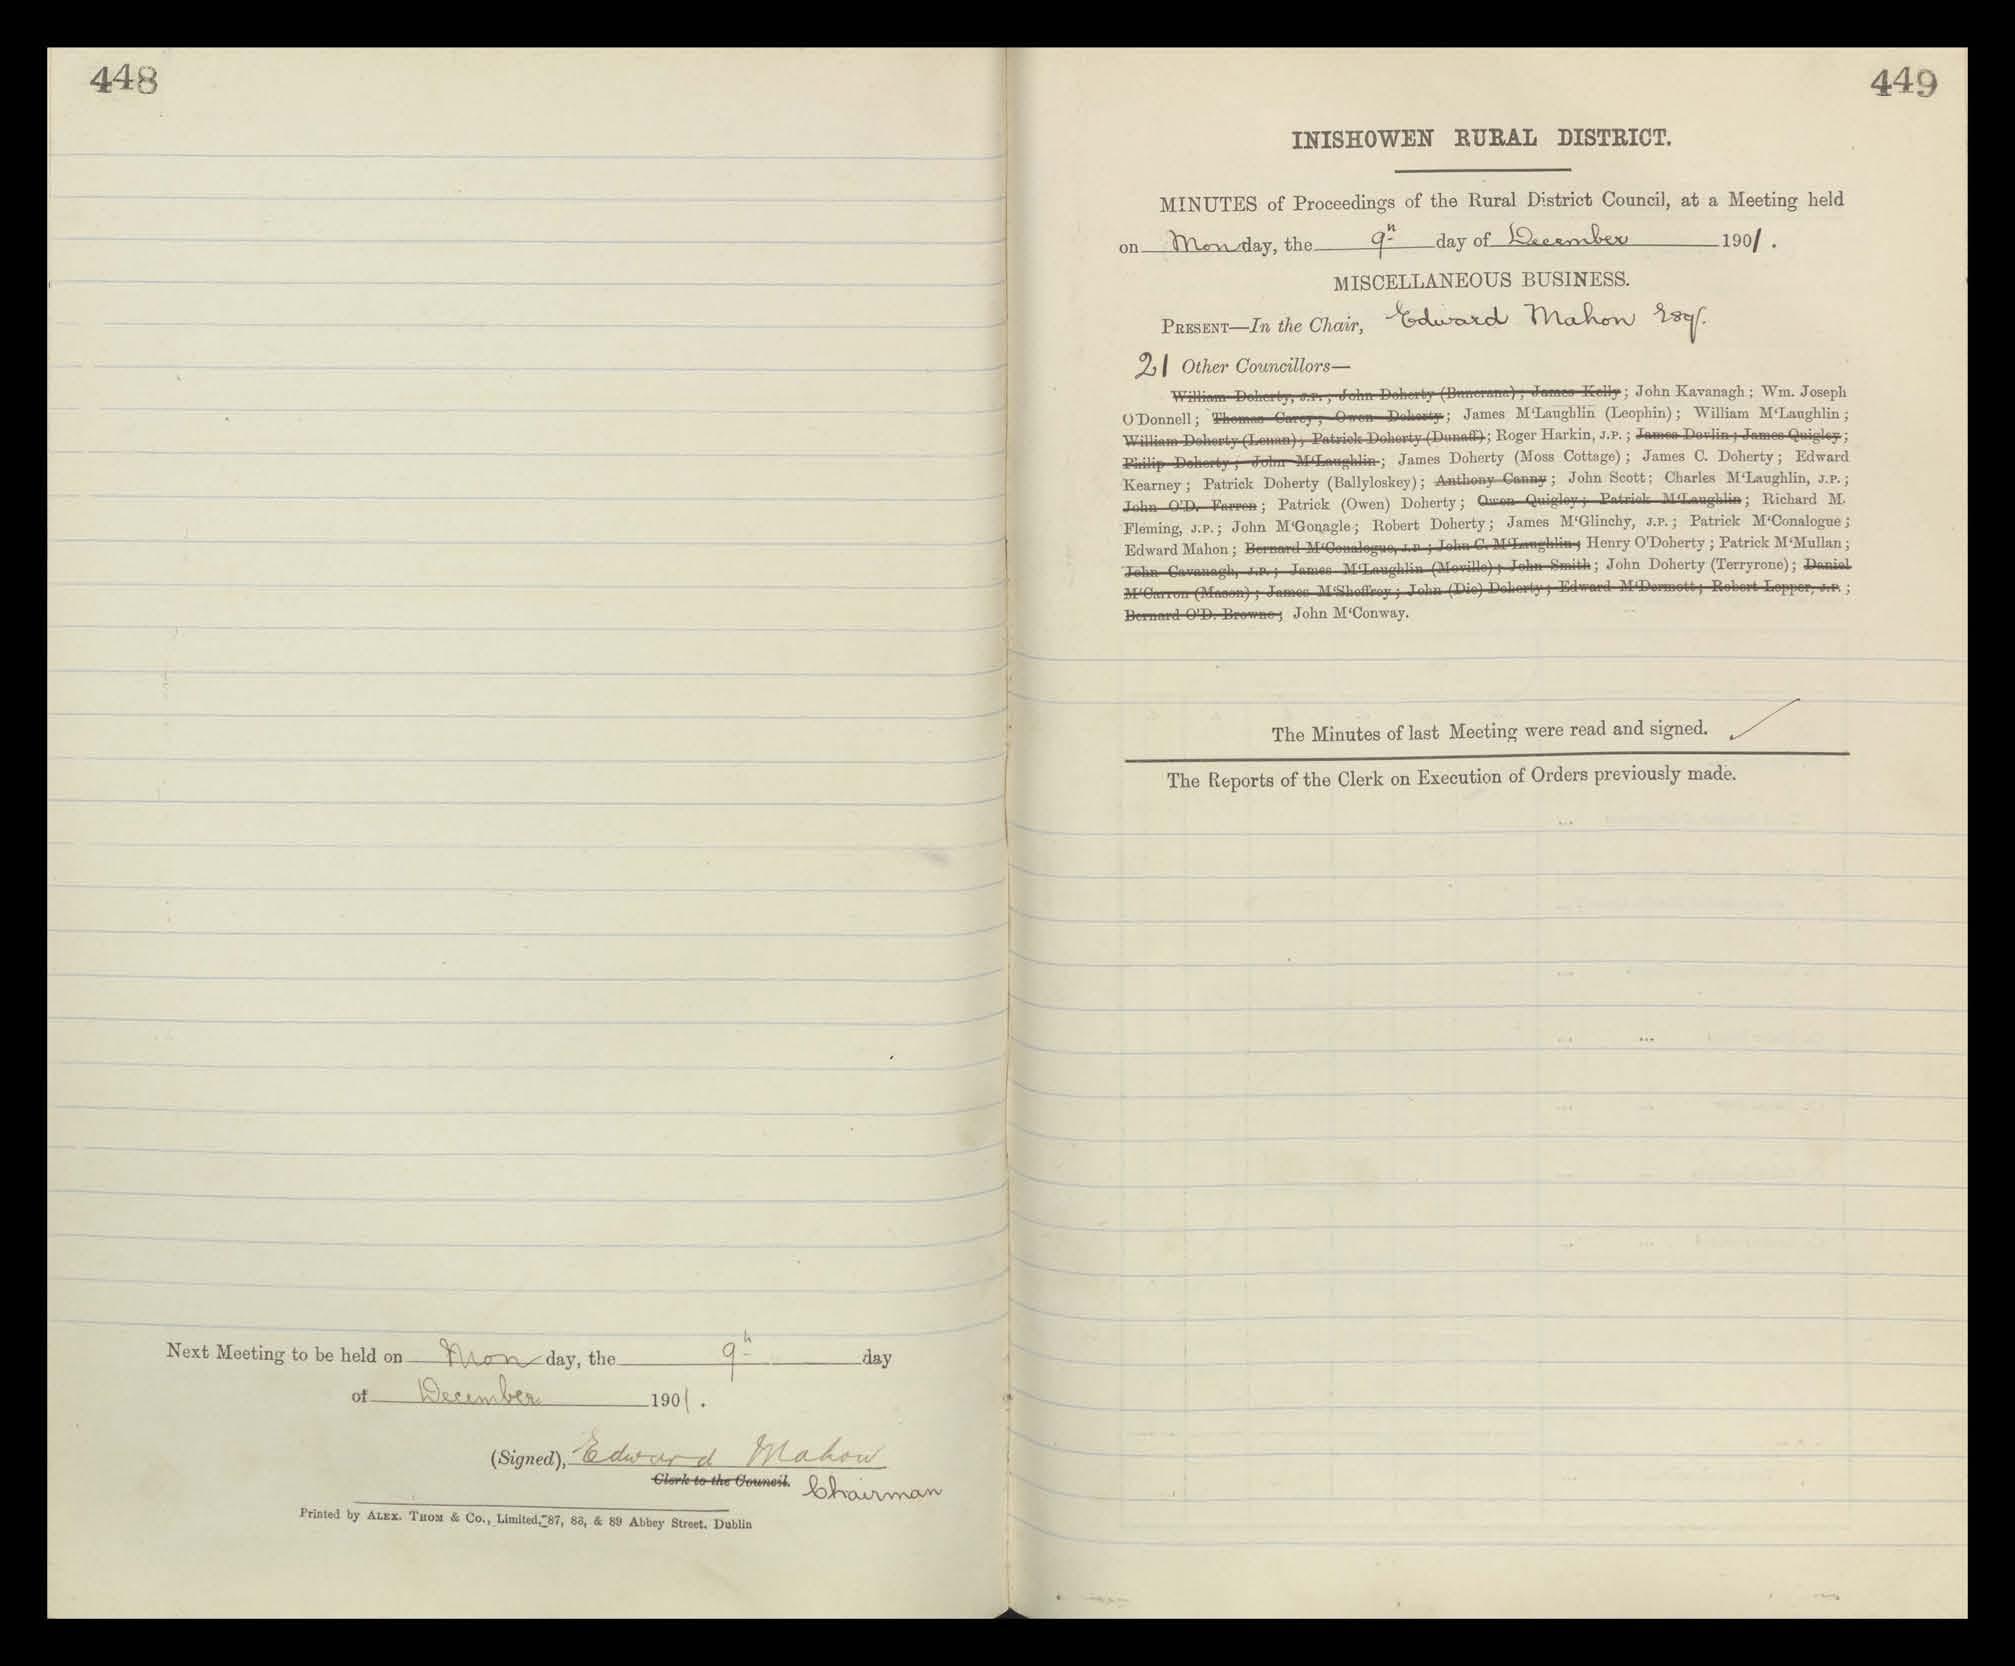 448
Next Meeting to be held on Monday, the 9th day
of December 1901.
(Signed), Edward Mahon
Clerk to the Council. Chairman
Printed by ALEX. THOM & Co., Limited, 87, 88, & 89 Abbey Street. Dublin
449
INISHOWEN RURAL DISTRICT.
MINUTES of Proceedings of the Rural District Council, at a Meeting held
on Monday, the 9th day of December 1901.
MISCELLANEOUS BUSINESS.
PRESENT—In the Chair, Edward Mahon Esqr.
21 Other Councillors—
William Doherty, J.P.; John Doherty (Buncrana); James Kelly; John Kavanagh; Wm. Joseph
O'Donnell; Thomas Carey; Owen Doherty; James M'Laughlin (Leophin); William M'Laughlin;
William Doherty (Lenan); Patrick Doherty (Dunaff); Roger Harkin, J.P.; James Devlin; James Quigley;
Philip Doherty; John M'Laughlin; James Doherty (Moss Cottage); James C. Doherty; Edward
Kearney; Patrick Doherty (Ballyloskey); Anthony Canny; John Scott; Charles M'Laughlin, J.P.;
John O'D. Farren; Patrick (Owen) Doherty; Owen Quigley; Patrick M'Laughlin; Richard M.
Fleming, J.P.; John M'Gonagle; Robert Doherty; James M'Glinchy, J.P.; Patrick M'Conalogue;
Edward Mahon; Bernard M'Conalogue, J.P.; John C. M'Laughlin; Henry O'Doherty; Patrick M'Mullan;
John Cavanagh, J.P.; James M'Laughlin (Moville); John Smith; John Doherty (Terryrone); Daniel
M'Carron (Mason); James M'Sheffrey; John (Die) Doherty; Edward M'Dermott; Robert Lepper, J.P.;
Bernard O'D. Browne; John M'Conway.
The Minutes of last Meeting were read and signed.
The Reports of the Clerk on Execution of Orders previously made.